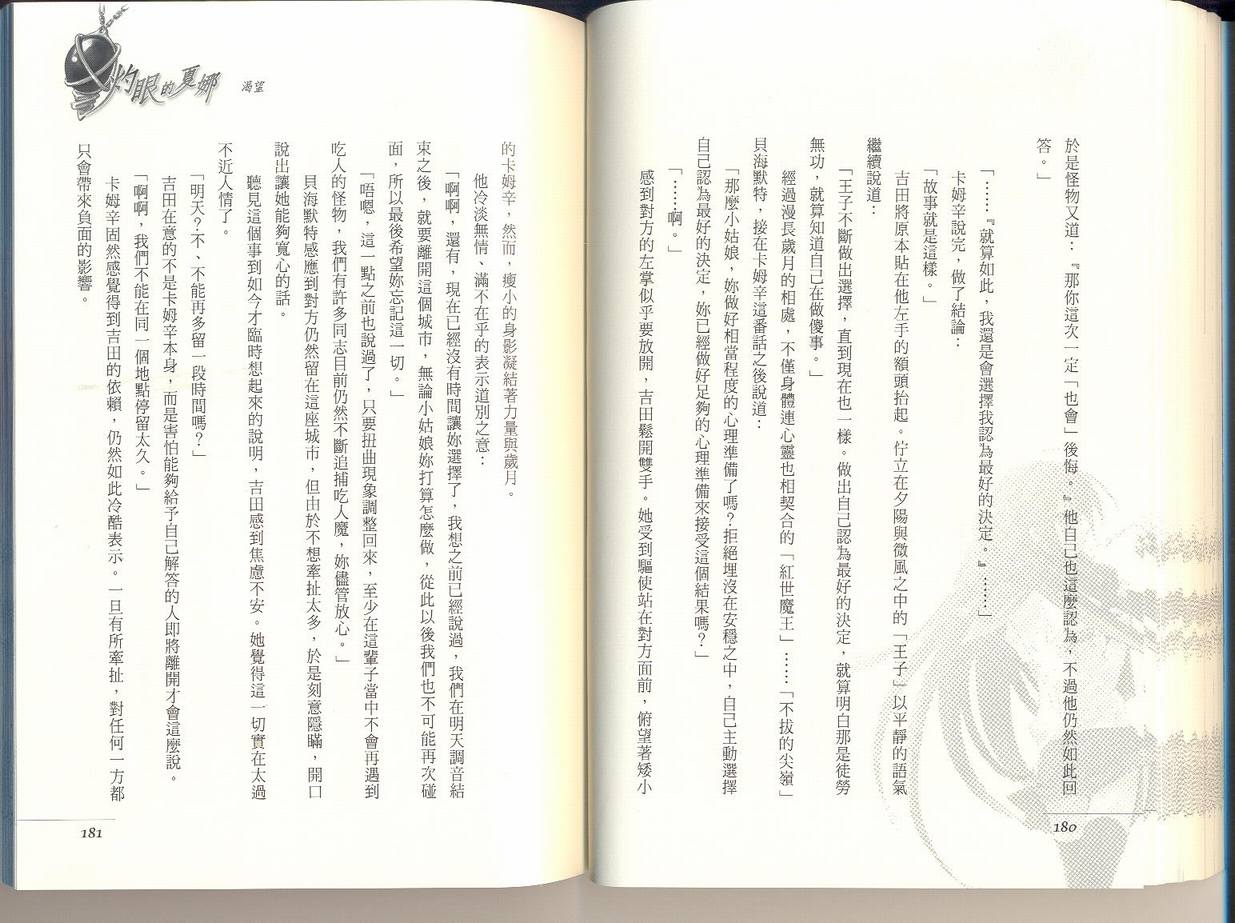 於是怪物又道：『那你這次一定「也會」後悔。』他自己也這麼認為，不過他仍然如此回
答。」
「……『就算如此，我還是會選擇我認為最好的決定。』……」
卡姆辛說完，做了結論：
「故事就是這樣。」
吉田將原本貼在他左手的額頭抬起。佇立在夕陽與微風之中的「王子」以平靜的語氣
繼續說道：
「王子不斷做出選擇，直到現在也一樣。做出自己認為最好的決定，就算明白那是徒勞
無功，就算知道自己在做傻事。」
經過漫長歲月的相處，不僅身體連心靈也相契合的「紅世魔王」……「不拔的尖嶺」
貝海默特，接在卡姆辛這番話之後說道：
「那麼小姑娘，妳做好相當程度的心理準備了嗎？拒絕埋沒在安穩之中，自己主動選擇
自己認為最好的決定，妳已經做好足夠的心理準備來接受這個結果嗎？」
「……啊。」
感到對方的左掌似乎要放開，吉田鬆開雙手。她受到驅使站在對方面前，俯望著矮小
180
灼眼的夏娜 渴望
的卡姆辛，然而，瘦小的身影凝結著力量與歲月。
他冷淡無情、滿不在乎的表示道別之意：
「啊啊，還有，現在已經沒有時間讓妳選擇了，我想之前已經說過，我們在明天調音結
束之後，就要離開這個城市，無論小姑娘妳打算怎麼做，從此以後我們也不可能再次碰
面，所以最後希望妳忘記這一切。」
「唔嗯，這一點之前也說過了，只要扭曲現象調整回來，至少在這輩子當中不會再遇到
吃人的怪物，我們有許多同志目前仍然不斷追捕吃人魔，妳儘管放心。」
貝海默特感應到對方仍然留在這座城市，但由於不想牽扯太多，於是刻意隱瞞，開口
說出讓她能夠寬心的話。
聽見這個事到如今才臨時想起來的說明，吉田感到焦慮不安。她覺得這一切實在太過
不近人情了。
「明天？不、不能再多留一段時間嗎？」
吉田在意的不是卡姆辛本身，而是害怕能夠給予自己解答的人即將離開才會這麼說。
「啊啊，我們不能在同一個地點停留太久。」
卡姆辛固然感覺得到吉田的依賴，仍然如此冷酷表示。一旦有所牽扯，對任何一方都
只會帶來負面的影響。
181